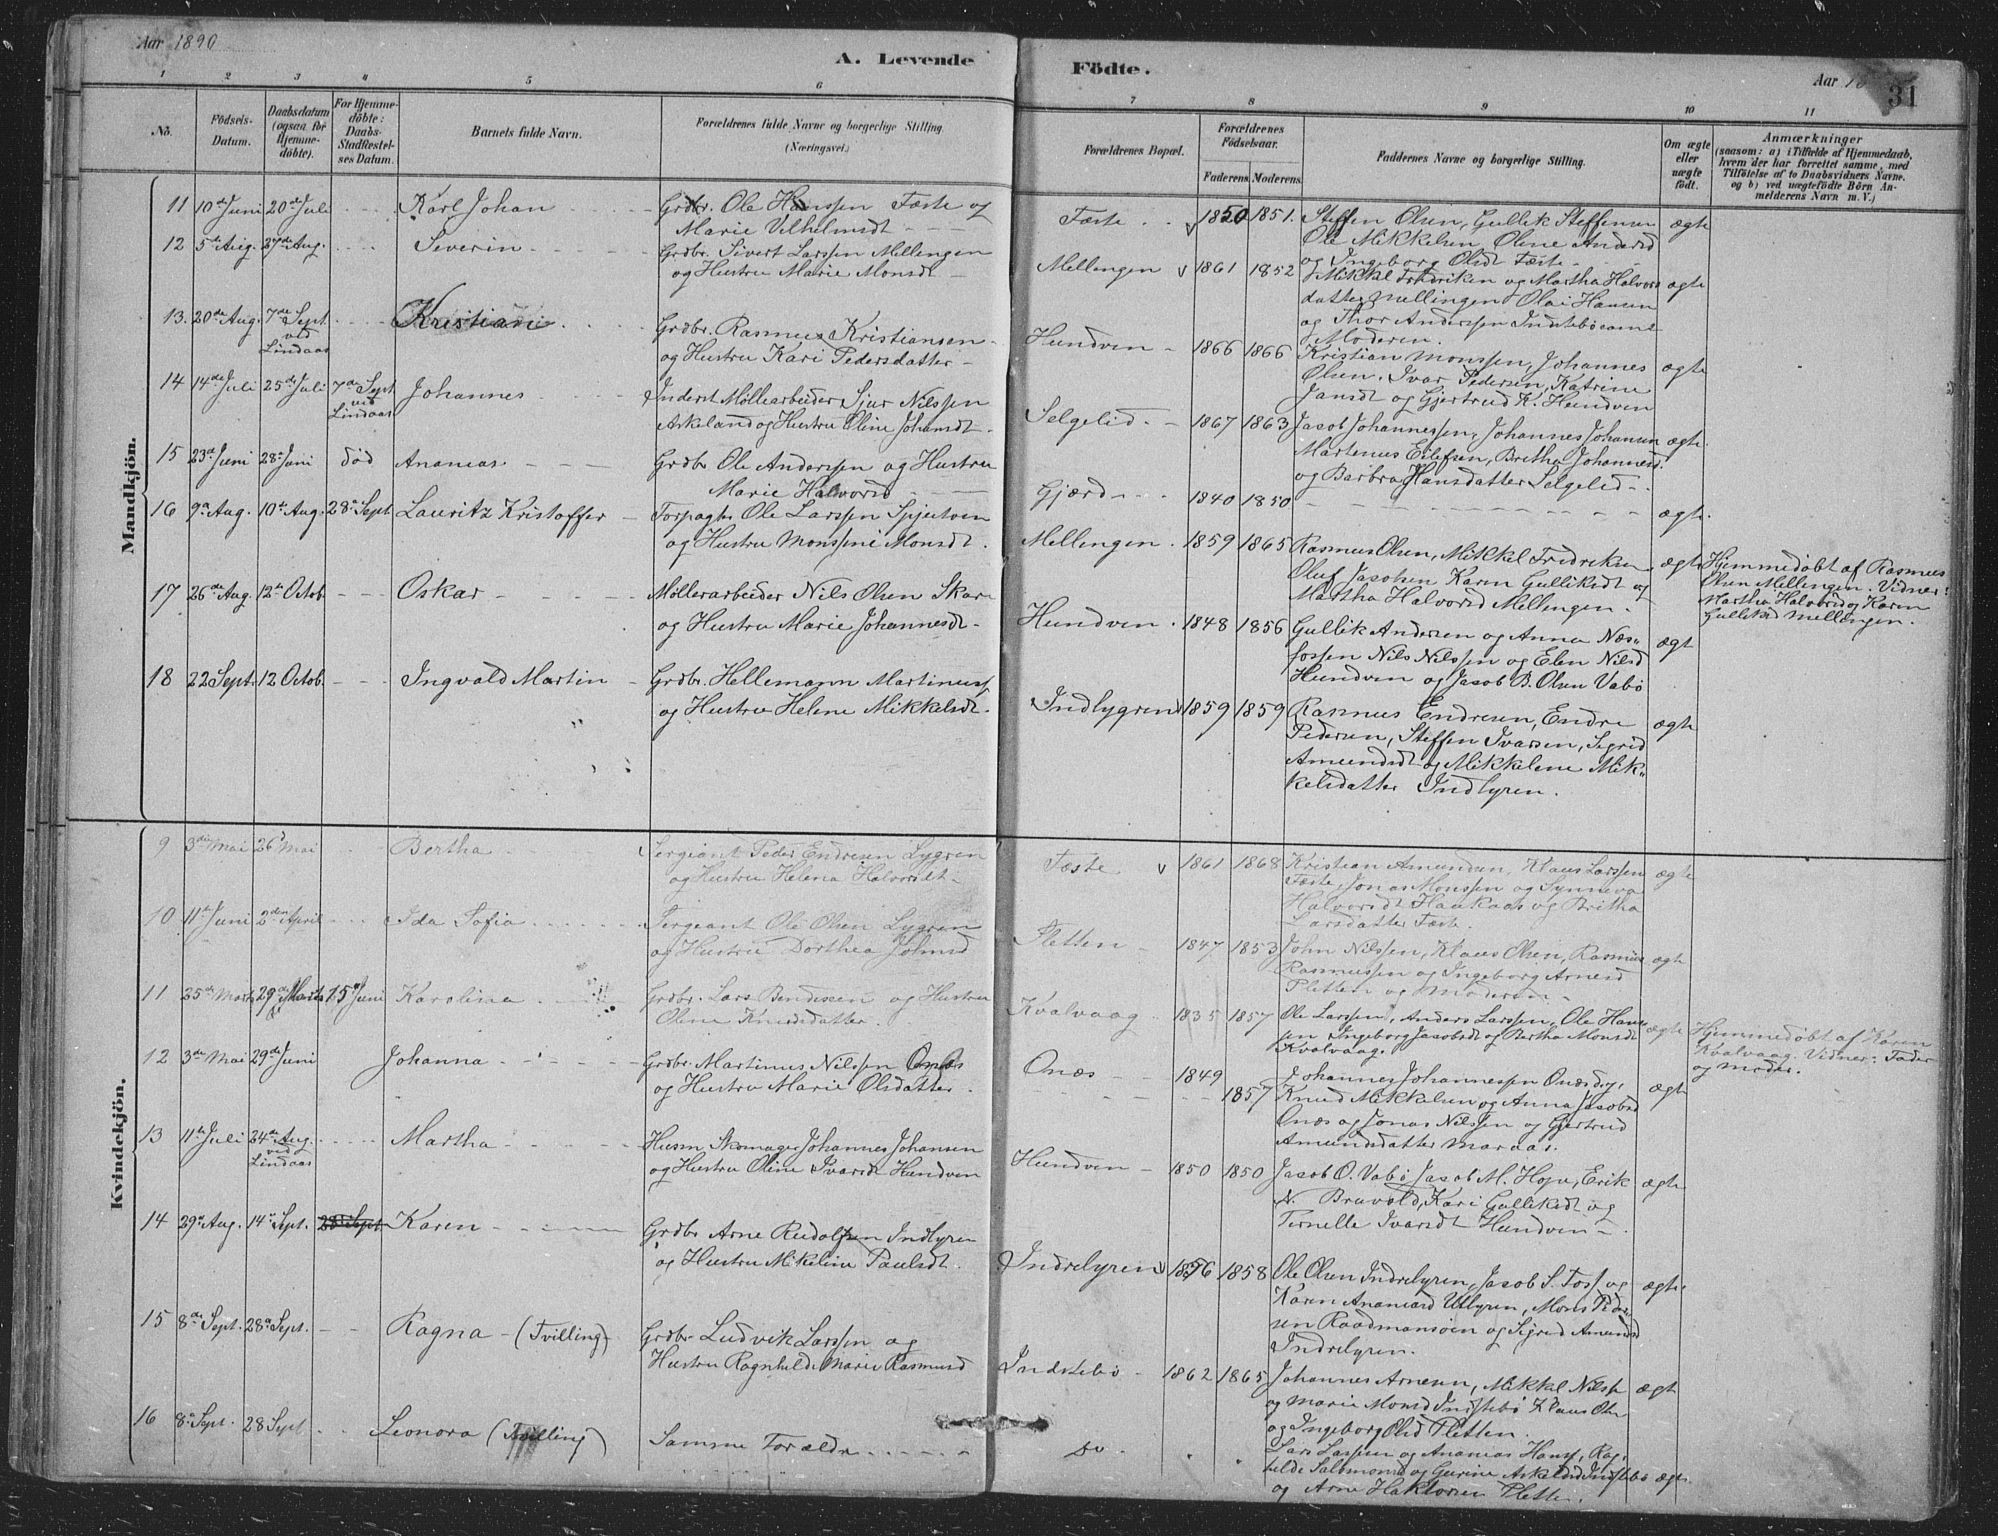 Aar 1890
A. Levende
Födte.
Aar 18
31
1 2 3 4 5 6 7 8 9 10 11
No.
Födsels-Datum.
Daabsdatum (ogsaa for Hjemme-döbte).
For Hjemme-döbte: Daabs-Stadfæstel-ses Datum.
Barnets fulde Navn.
Forældrenes fulde Navne og borgerlige Stilling
(Næringsvei.)
Forældrenes Bopæl.
Forældrenes Födselsaar.
Faderens. Moderens.
Faddernes Navne og borgerlige Stilling.
Om ægte eller uægte født.
Anmærkninger
(saasom: a) i Tilfælde af Hjemmedaab,
hvem der har forrettet samme, med
Tilföielse af to Daabsvidners Navne,
og b) ved uægtefödte Börn An-
melderens Navn m. V.)
Mandkjön.
11 10de Juni 20de Juli Karl Johan Grdbr. Ole Hanssen Fæste og
Marie Vilhelmsdt
Fæste 1850 1851. Steffen Olsen, Gullik Steffensen ægte
Ole Mikkelsen, Oline Andersd
og Ingeborg Olsdt Fæste
12 5te Aug. 24de Aug. Severin Grdbr. Sivert Larssen Mellingen
og Hustru Marie Monsdt
Mellingen 1861 1852 Mikkel Fredriksen og Martha Halvors ægte
datter Mellingen Olai Hansen
og Thor Anderssen Indstebö samt
Moderen.
13. 20de Aug. 7de Sept. ved Lindaas Kristian Grdbr. Rasmus Kristiansen
og Hustru Kari Pedersdatter
Hundven 1866 1866 Kristian Monssen, Johannes ægte
Olsen, Ivar Pedersen, Katrine
Jansdt og Gjertrud K. Hundven
14 14de Juli 25de Juli 7de Sept ved Lindaas Johannes Inderst Möllearbeider Sjur Nilssen
Askeland og Hustru Oline Johansdt.
Selgelid 1867 1863 Jacob Johannessen, Johannes Johansen ægte
Martenus Eilefsen, Britha Johannesd.
og Barbra Hansdatter Selgelid
15 23de Juni 28de Juni död Ananias Grdbr Ole Anderssen og Hustru
Marie Halvorsd
Gjærd 1840 1850 ægte.
16 9de Aug. 10de Aug. 28de Sept. Lauritz Kristoffer Forpagter Ole Larssen Spjutøen
og Hustru Monssine Monsdt.
Mellingen. 1859 1865 Rasmus Olsen, Mikkel Fredriksen ægte
Oluf Jacobsen Karen Gulliksdt og
Martha Halvorsd Mellingen.
Hjemmedöbt af Rasmus
Olsen Mellingen. Vidner:
Martha Halvorsd og Karen
Gulliksd Mellengen.
17 26de Aug. 12te Octob. Oskar Möllerarbeider Nils Olsen Skar
og Hustru Marie Johannesdt.
Hundven. 1848 1856 Gullik Andersen og Anna Næs- ægt
fossen Nils Nilssen og Elen Nilsd
Hundven og Jacob B. Olsen Vabö
18 22 Sept. 12 Octob. Ingvald Martin Grdbr. Hellemann Martinuss
og Hustru Helene Mikkelsdt.
Indlygren 1859 1859 Rasmus Endresen, Endre ægte
Pedersen, Steffen Ivarsen, Sigrid
Amundsdt og Mikkeline Mik-
kelsdatter Indlyren.
Kvindekjön.
9 3die Mai 26 Mai Bertha Sergiant Peder Endresen Lygren
og Hustru Helena Halvorsdt
Fæste 1861 1868 Kristian Amundsen, Klaus Larssen ægte
Fæste, Jonas Monssen og Synneva
Halvorsdt Haukaas og Britha
Larsdatter Fæste.
10 11te Juni 2den April Ida Sofia Sergeant Ole Olsen Lygren
og Hustru Dorthea Johnsd
Fletten 1847 1853 John Nilssen, Klaus Olsen, Rasmus ægte
Rasmussen og Ingeborg Arnesd
Fletten og Moderen
11 25de Marts 29de Marts 15de Juni Karolina Grdbr. Lars Bendixsen og Hustru
Oline Knudsdatter.
Kvalvaag 1835 1857 Ole Larssen, Anders Larssen, Ole Hans- ægte
sen Ingeborg Jacobsdt og Bertha Monsdt
Kvalvaag.
Hjemmedöbt af Karen
Kvalvaag. Vidner: Fader
og Moder.
12 3de Mai 29de Juni Johanna Grdbr. Martinus Nilssen Onæs
og Hustru Marie Olsdatter.
Onæs 1849 1857 Johannes Johannessen Onæs og, ægt
Knud Mikkelsen og Anna Jacobsd
Onæs og Jonas Nilssen og Gjertrud
Amundsdatter Maraas.
13 11te Juli 24de Aug. ved Lindaas Martha Husm Skomager Johannes Johansen
og Hustru Oline Ivarsdt Hundven
Hundven 1850 1850 Jacob O. Vabö Jacob M. Hope, Erik ægte
N. Bruvold, Kari Gulliksdt og
Pernelle Ivarsdt Hundven
14 29de Aug. 14de Sept. 28 Sept Karen Grdbr Arne Rudolfsen Indlyren
og Hustru Mikeline Paulsdt.
Indrelyren 1856 1858 Ole Olsen Indrelyren, Jacob S. Foss og ægte.
Karen Ananiasd Utlyren, Mons Peder-
sen Raadmansöen og Sigrid Amundsd
Indrelyren.
15 8de Sept. 28de Sept. Ragna (Tvilling) Grdbr Ludvik Larssen og
Hustru Ragnhilde Marie Rasmusd
Indstebö 1862 1865 Johannes Arnesen, Mikkel Nilss ægt
og Marie Monsd Indstebö Klaus Olsen
og Ingeborg Olsd Fletten.
16 8de Sept. 28 Sept Leonora (Tvilling) Samme Forældre
Do Lars Larssen og Ananias Hanss, Rag- ægte
hilde Salomonsd og Gurine Askildsd Indstebö
og Arne Haktorsen Fletten.